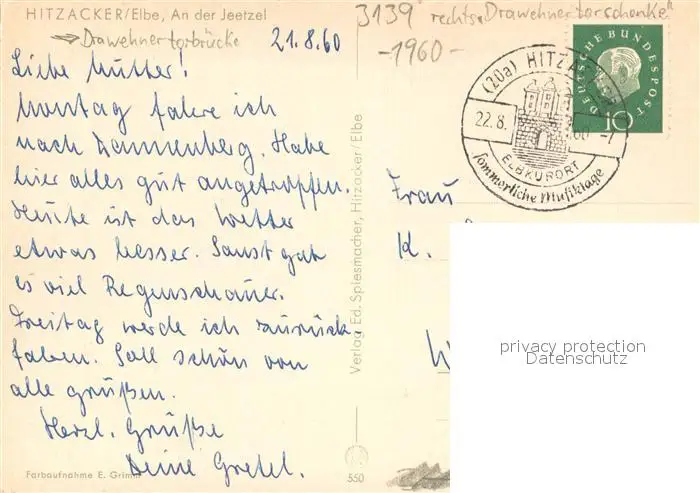 HITZACKER/Elbe, An der Jeetzel
Drawehnertorbrücke
21.8.60
Liebe Mutter!
Montag fahre ich
nach Dannenberg. Habe
hier alles gut angetroffen.
Heute ist das Wetter
etwas besser. Sonst gab
es viel Regenschauer.
Freitag werde ich zurück-
fahren. Soll schön von
alle grüßen.
Herzl. Grüße
Deine Gretel.
Farbaufnahme E. Grimm
Verlag Ed. Spiesmacher, Hitzacker/Elbe
550
3139 rechts „Drawehnertorschenke"
-1960-
(20a) HITZACKER
22.8. 60 -7
ELBKURORT
Sommerliche Musiktage
DEUTSCHE BUNDESPOST
10
Frau
K.
privacy protection
Datenschutz